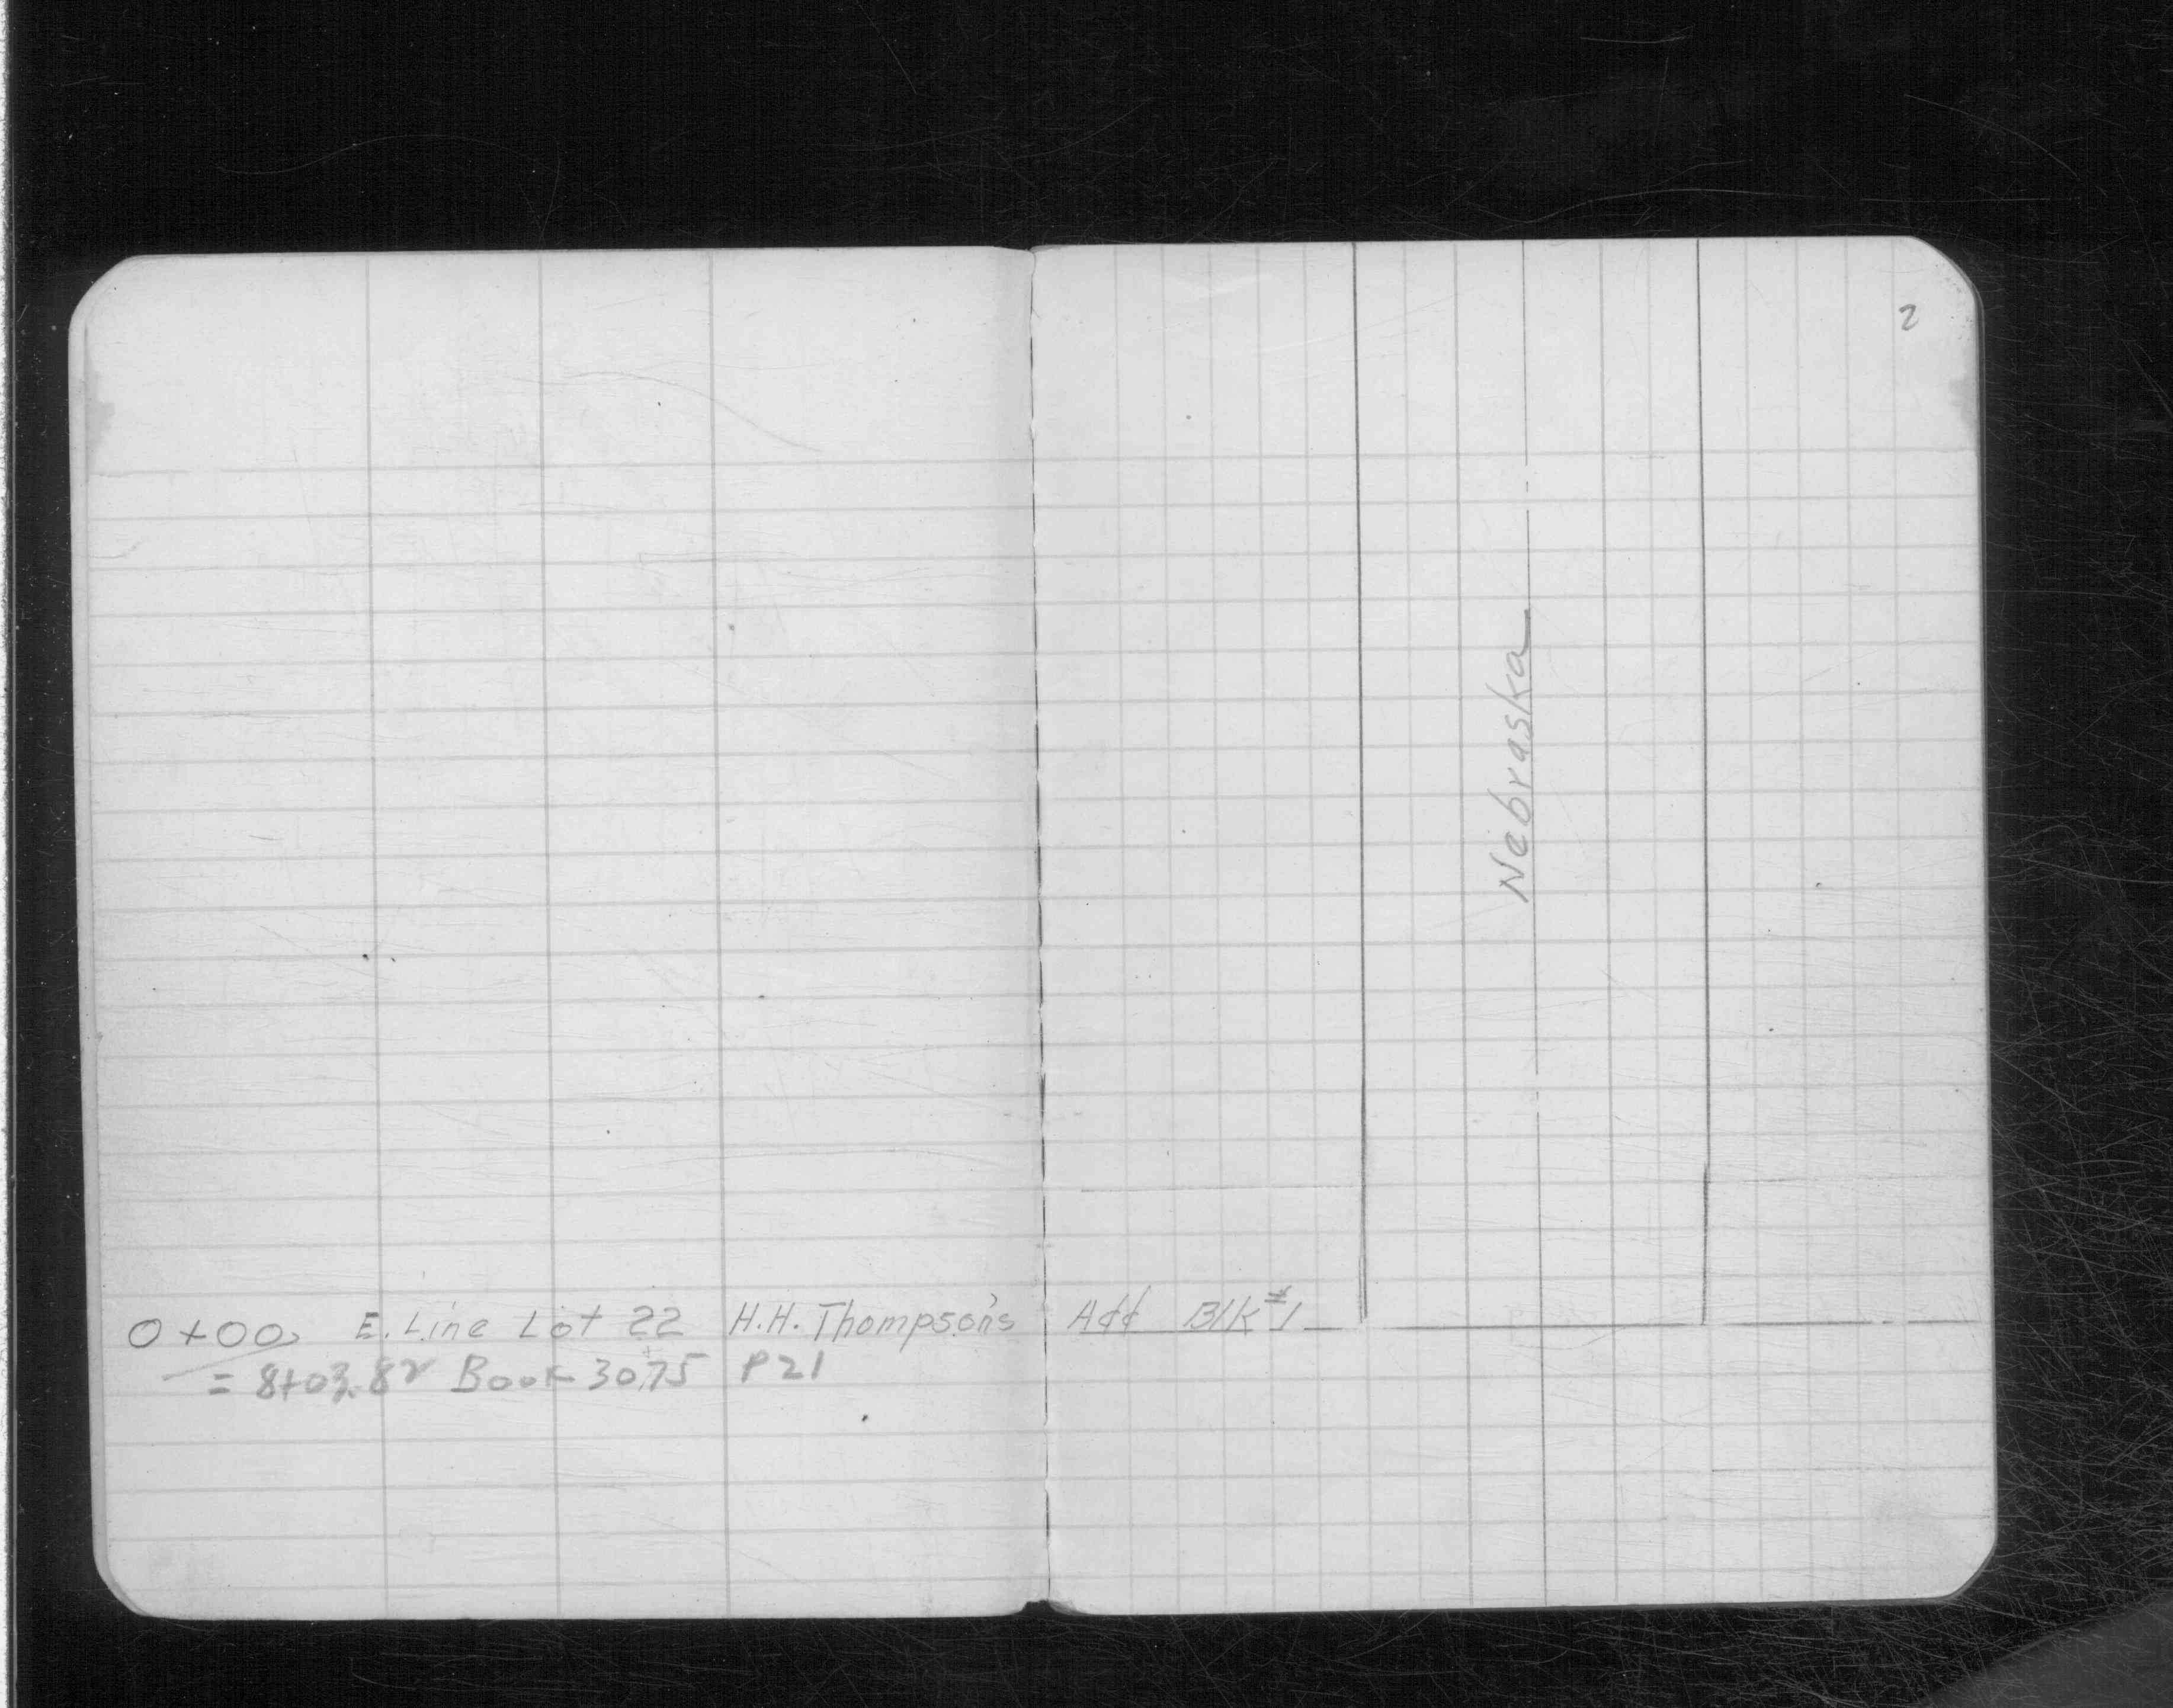 2
Nebraska
0+00 E. Line Lot 22 H.H. Thompson's Add Blk #1
= 8+03.82 Book 3075 P21